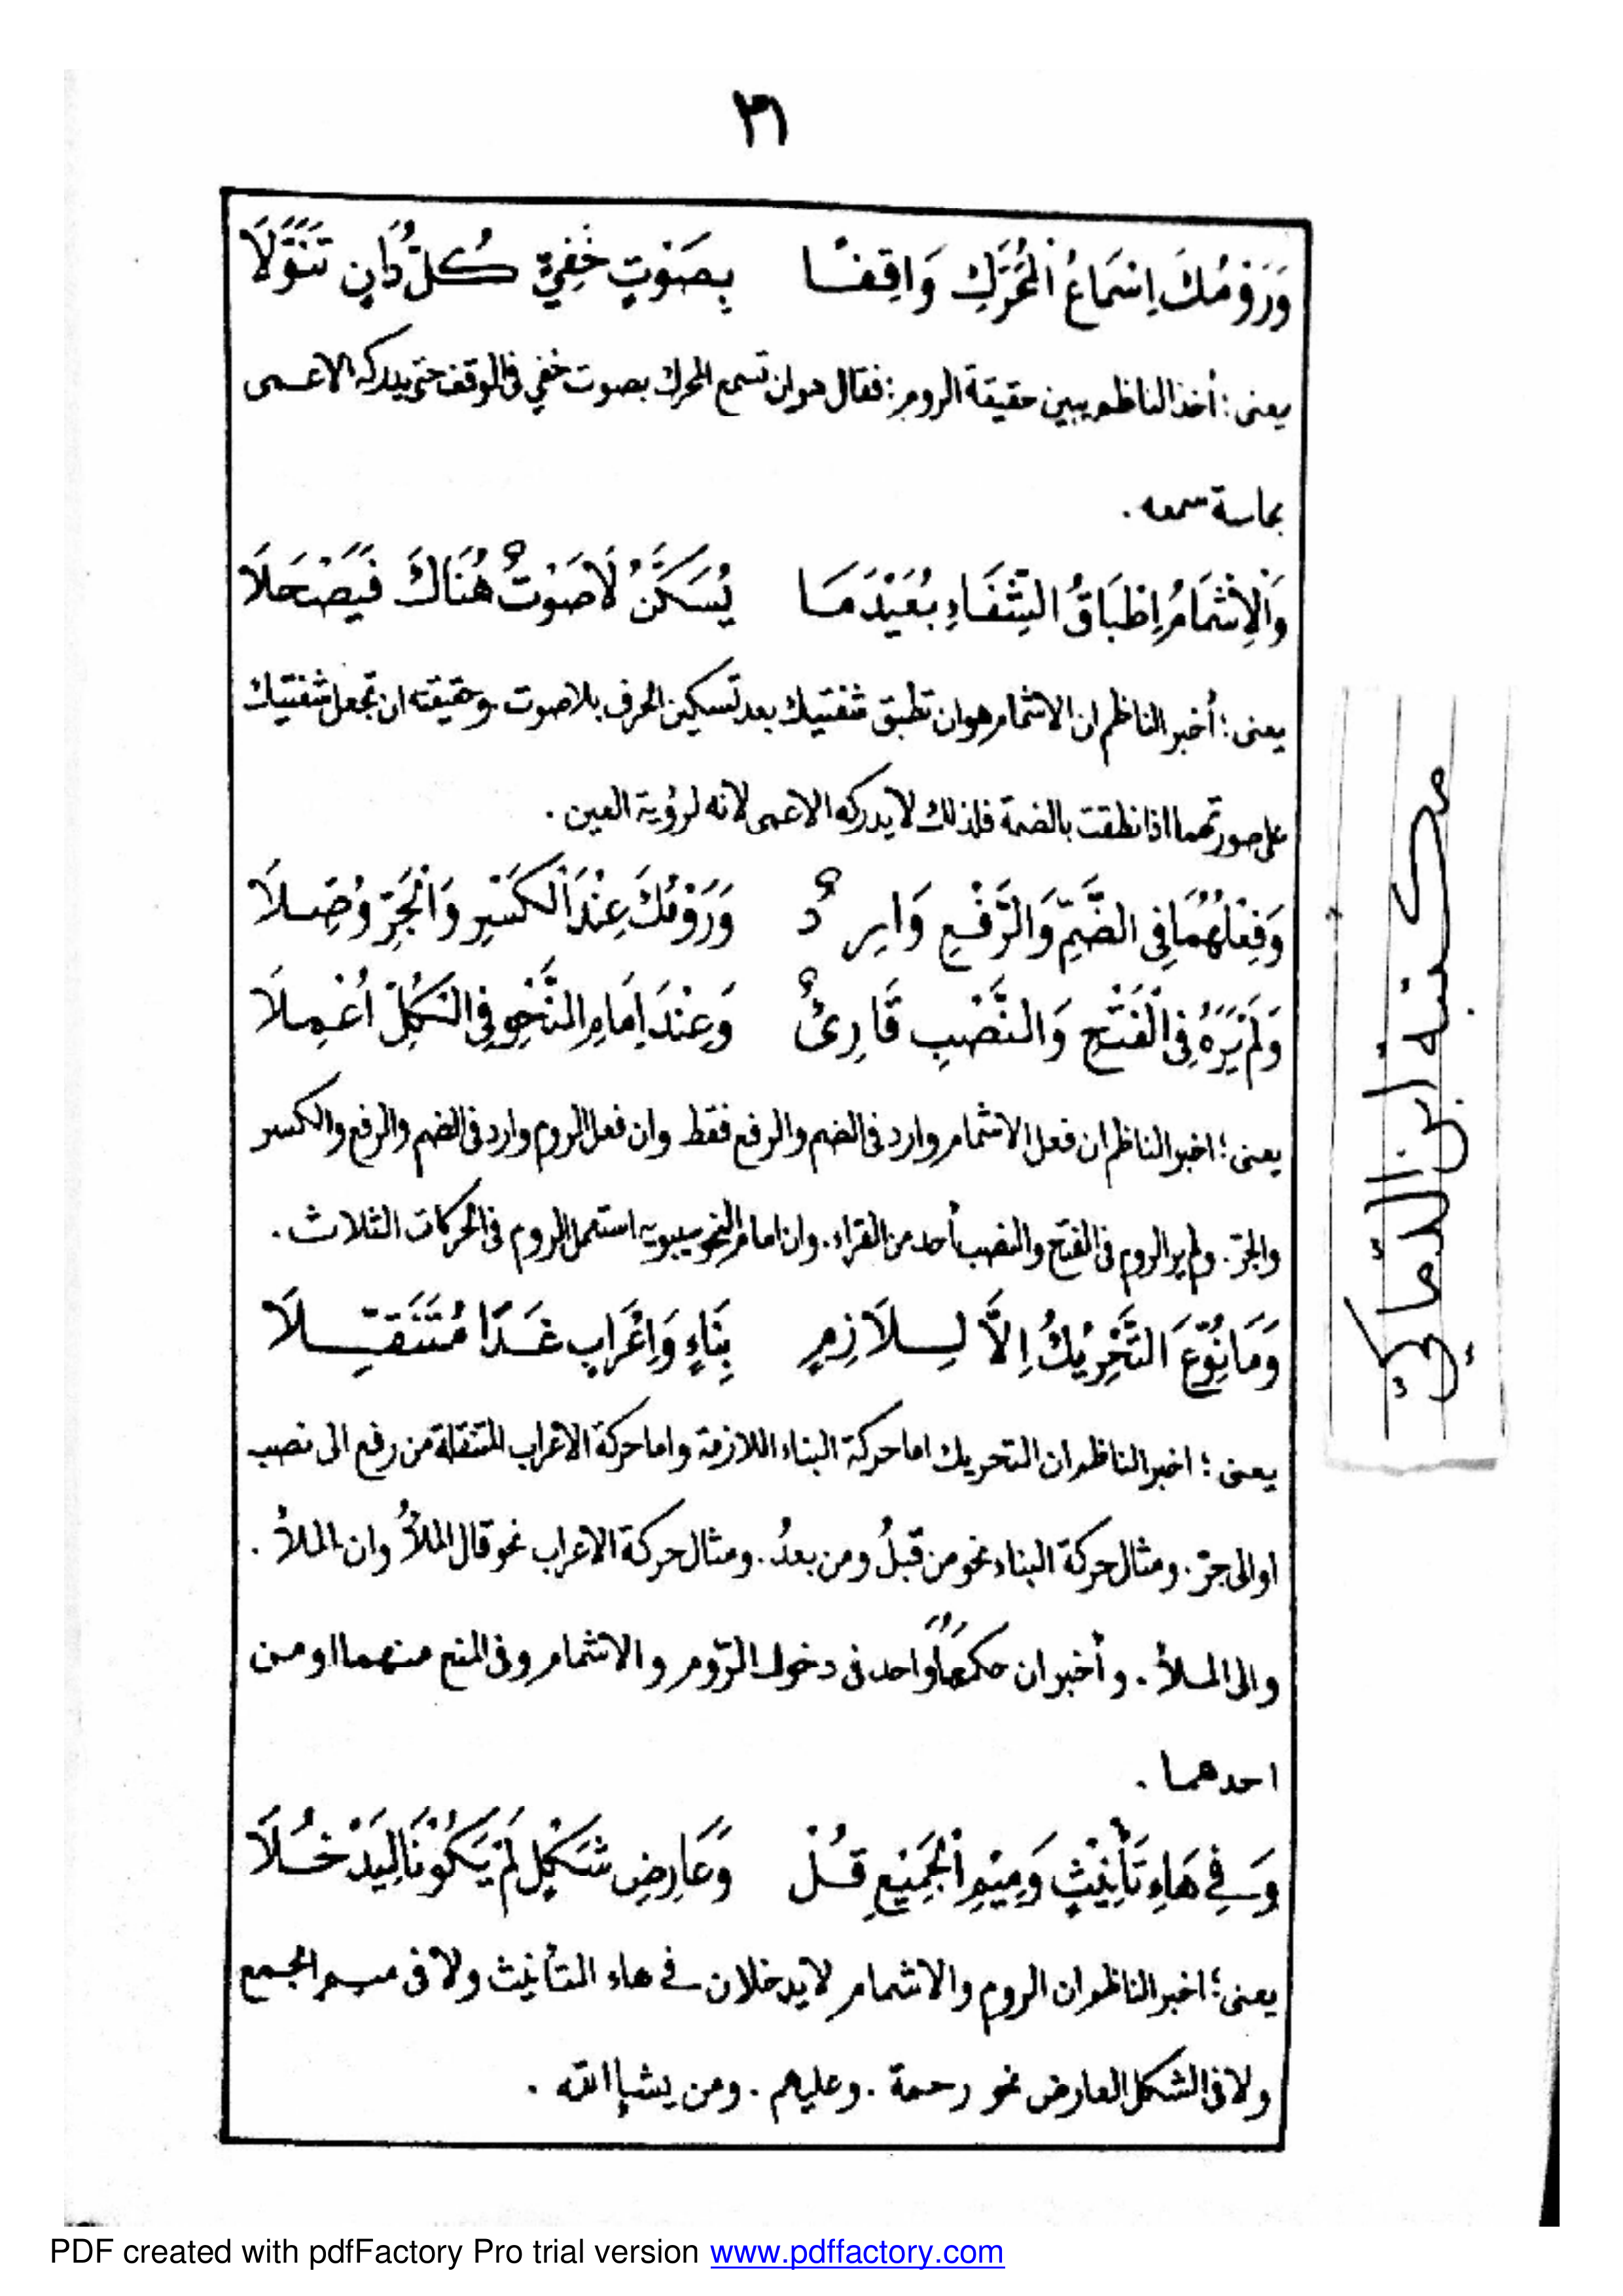 ٣١
وَرَوْمُكَ اِسْمَاعُ الْمُحَرَّكِ وَاقِفًا بِصَوْتٍ خَفِيٍّ كُلَّ دَانٍ تَنَوَّلَا
يعنى : أخذ الناظم يبين حقيقة الروم : فقال هو ان تسمع المحرك بصوت خفي فى الوقف حتى يدركه الاعمى
بحاسة سمعه .
وَالْاِشْمَامُ اِطْبَاقُ الشِّفَاهِ بُعَيْدَ مَا يُسَكَّنُ لَا صَوْتٌ هُنَاكَ فَيَصْحَلَا
يعنى : أخبر الناظم ان الاشمام هو ان تطبق شفتيك بعد تسكين الحرف بلا صوت . وحقيقته ان تجعل شفتيك
على صورتهما اذا نطقت بالضمة فلذلك لا يدركه الاعمى لانه لرؤية العين .
وَفِعْلُهُمَا فِى الضَّمِّ وَالرَّفْعِ وَارِدٌ وَرَوْمُكَ عِنْدَ الْكَسْرِ وَالْجَرِّ وُصِّلَا
وَلَمْ يَرَهُ فِى الْفَتْحِ وَالنَّصْبِ قَارِئٌ وَعِنْدَ اِمَامِ النَّحْوِ فِى الْكُلِّ اُعْمِلَا
يعنى : اخبر الناظم ان فعل الاشمام وارد فى الضم والرفع فقط وان فعل الروم وارد فى الضم والرفع والكسر
والجرّ . ولم ير الروم فى الفتح والنصب أحد من القراء . وان امام النحو سيبويه استعمل الروم فى الحركات الثلاث .
وَمَا نُوِّعَ التَّحْرِيْكُ اِلَّا لِلَازِمٍ بِنَاءٍ وَاِعْرَابٍ غَدَا مُتَنَقِّلَا
يعنى : اخبر الناظم ان التحريك اما حركة البناء اللازمة واما حركة الاعراب المتنقلة من رفع الى نصب
او الى جرّ . ومثال حركة البناء نحو من قبلُ ومن بعدُ . ومثال حركة الاعراب نحو قال الملأُ وان الملأَ .
والى الملأ . وأخبر ان حكمها واحد فى دخول الرّوم والاشمام وفى المنع منهما او من
احدهما .
وَفِي هَاءِ تَأْنِيْثٍ وَمِيْمِ الْجَمِيْعِ قُلْ وَعَارِضِ شَكْلٍ لَمْ يَكُوْنَا لِيَدْخُلَا
يعنى : اخبر الناظم ان الروم والاشمام لا يدخلان في هاء التأنيث ولا فى ميم الجمع
ولا فى الشكل العارض نحو رحمة . وعليهم . ومن يشإ الله .
مكتبة ابن الدّماكيّ
PDF created with pdfFactory Pro trial version www.pdffactory.com